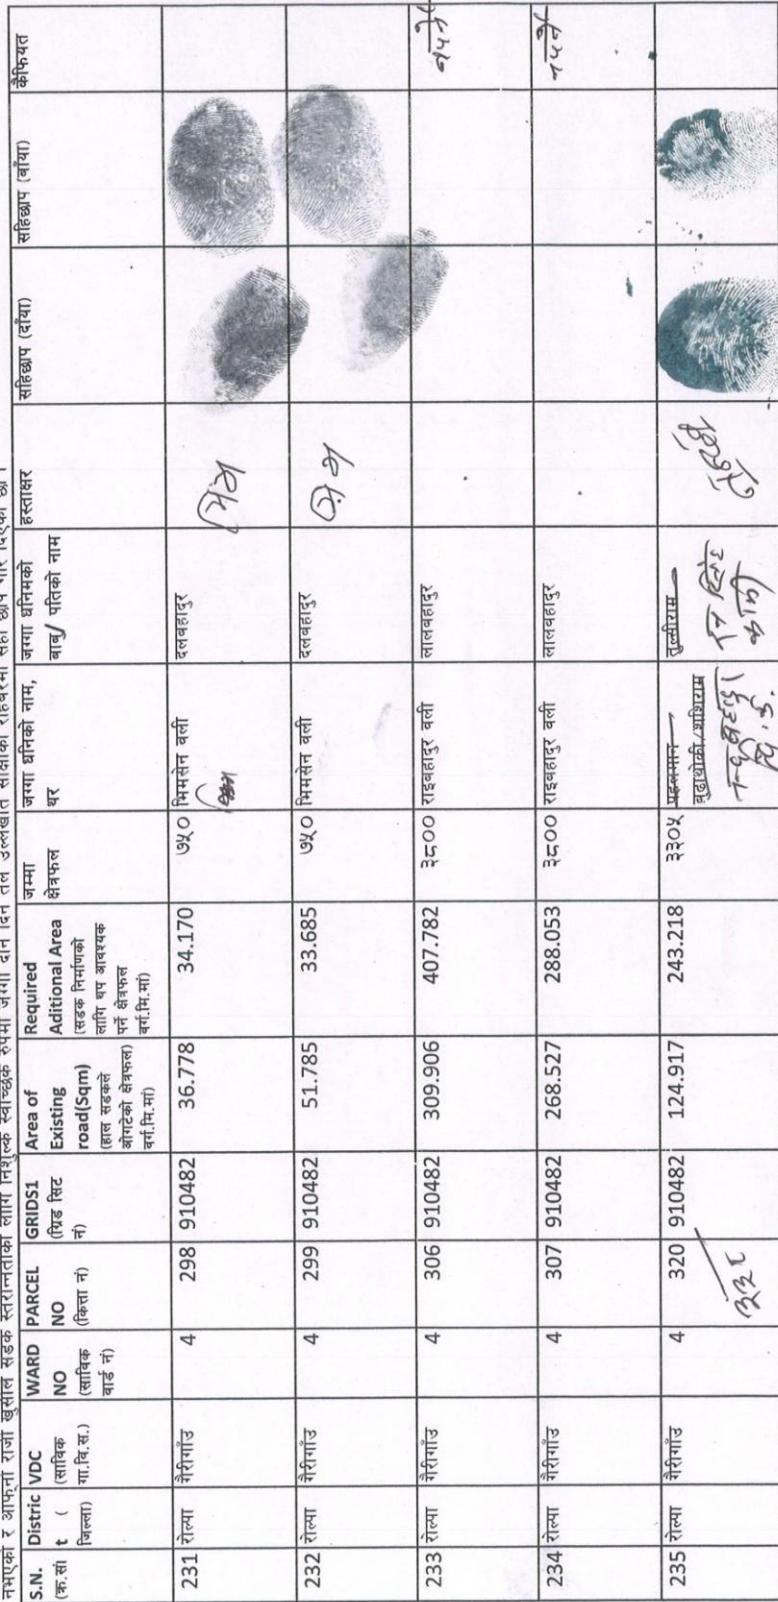 नभएको र आफ्नो राजी खुसीले सडक स्तरोन्नतीको लागि निशुल्क स्वेच्छिक रुपमा जग्गा दान दिन तल उल्लेखीत साक्षीको रोहबरमा सही छाप गरि दिएका छौं ।
S.N. (क्र.सं) Distric t ( जिल्ला) VDC (साविक गा.वि.स.) WARD NO (साविक वार्ड नं) PARCEL NO (कित्ता नं) GRIDS1 (ग्रिड सिट नं) Area of Existing road(Sqm) (हाल सडकले ओगटेको क्षेत्रफल) वर्ग.मि.मा) Required Aditional Area (सडक निर्माणको लागि थप आवश्यक पर्ने क्षेत्रफल वर्ग.मि.मां) जम्मा क्षेत्रफल जग्गा धनिको नाम, थर जग्गा धनिमको बाबु/ पतिको नाम हस्ताक्षर सहिछाप (दाँया) सहिछाप (बाँया) कैफियत
231 रोल्पा गैरीगाँउ 4 298 910482 36.778 34.170 ७५० भिमसेन वली दलबहादुर
232 रोल्पा गैरीगाँउ 4 299 910482 51.785 33.685 ७५० भिमसेन वली दलबहादुर
233 रोल्पा गैरीगाँउ 4 306 910482 309.906 407.782 ३८०० राइबहादुर वली लालबहादुर
234 रोल्पा गैरीगाँउ 4 307 910482 268.527 288.053 ३८०० राइबहादुर वली लालबहादुर
235 रोल्पा गैरीगाँउ 4 320 910482 124.917 243.218 ३३०५ पहलमान बुढाथोकी/शशिराम तुल्सीराम